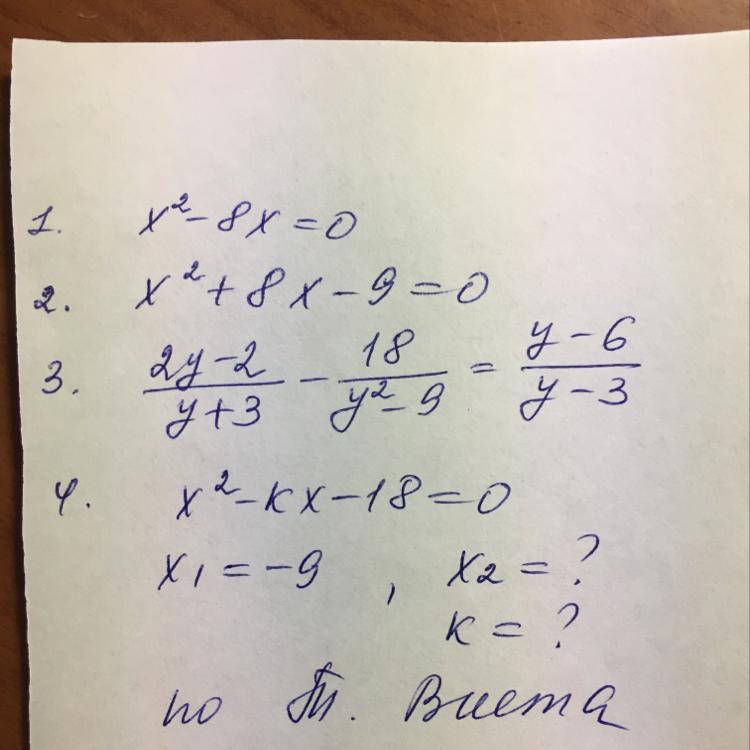 1. x² - 8x = 0
2. x² + 8x - 9 = 0
3. (2y - 2)/(y + 3) - 18/(y² - 9) = (y - 6)/(y - 3)
4. x² - кx - 18 = 0
x₁ = -9 , x₂ = ?
к = ?
по Т. Виета